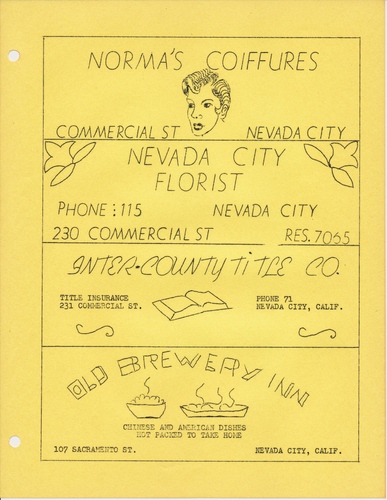 NORMA'S COIFFURES
COMMERCIAL ST NEVADA CITY
NEVADA CITY
FLORIST
PHONE: 115 NEVADA CITY
230 COMMERCIAL ST RES. 7065
INTER-COUNTY TITLE CO.
TITLE INSURANCE PHONE 71
231 COMMERCIAL ST. NEVADA CITY, CALIF.
OLD BREWERY INN
CHINESE AND AMERICAN DISHES
HOT PACKED TO TAKE HOME
107 SACRAMENTO ST. NEVADA CITY, CALIF.